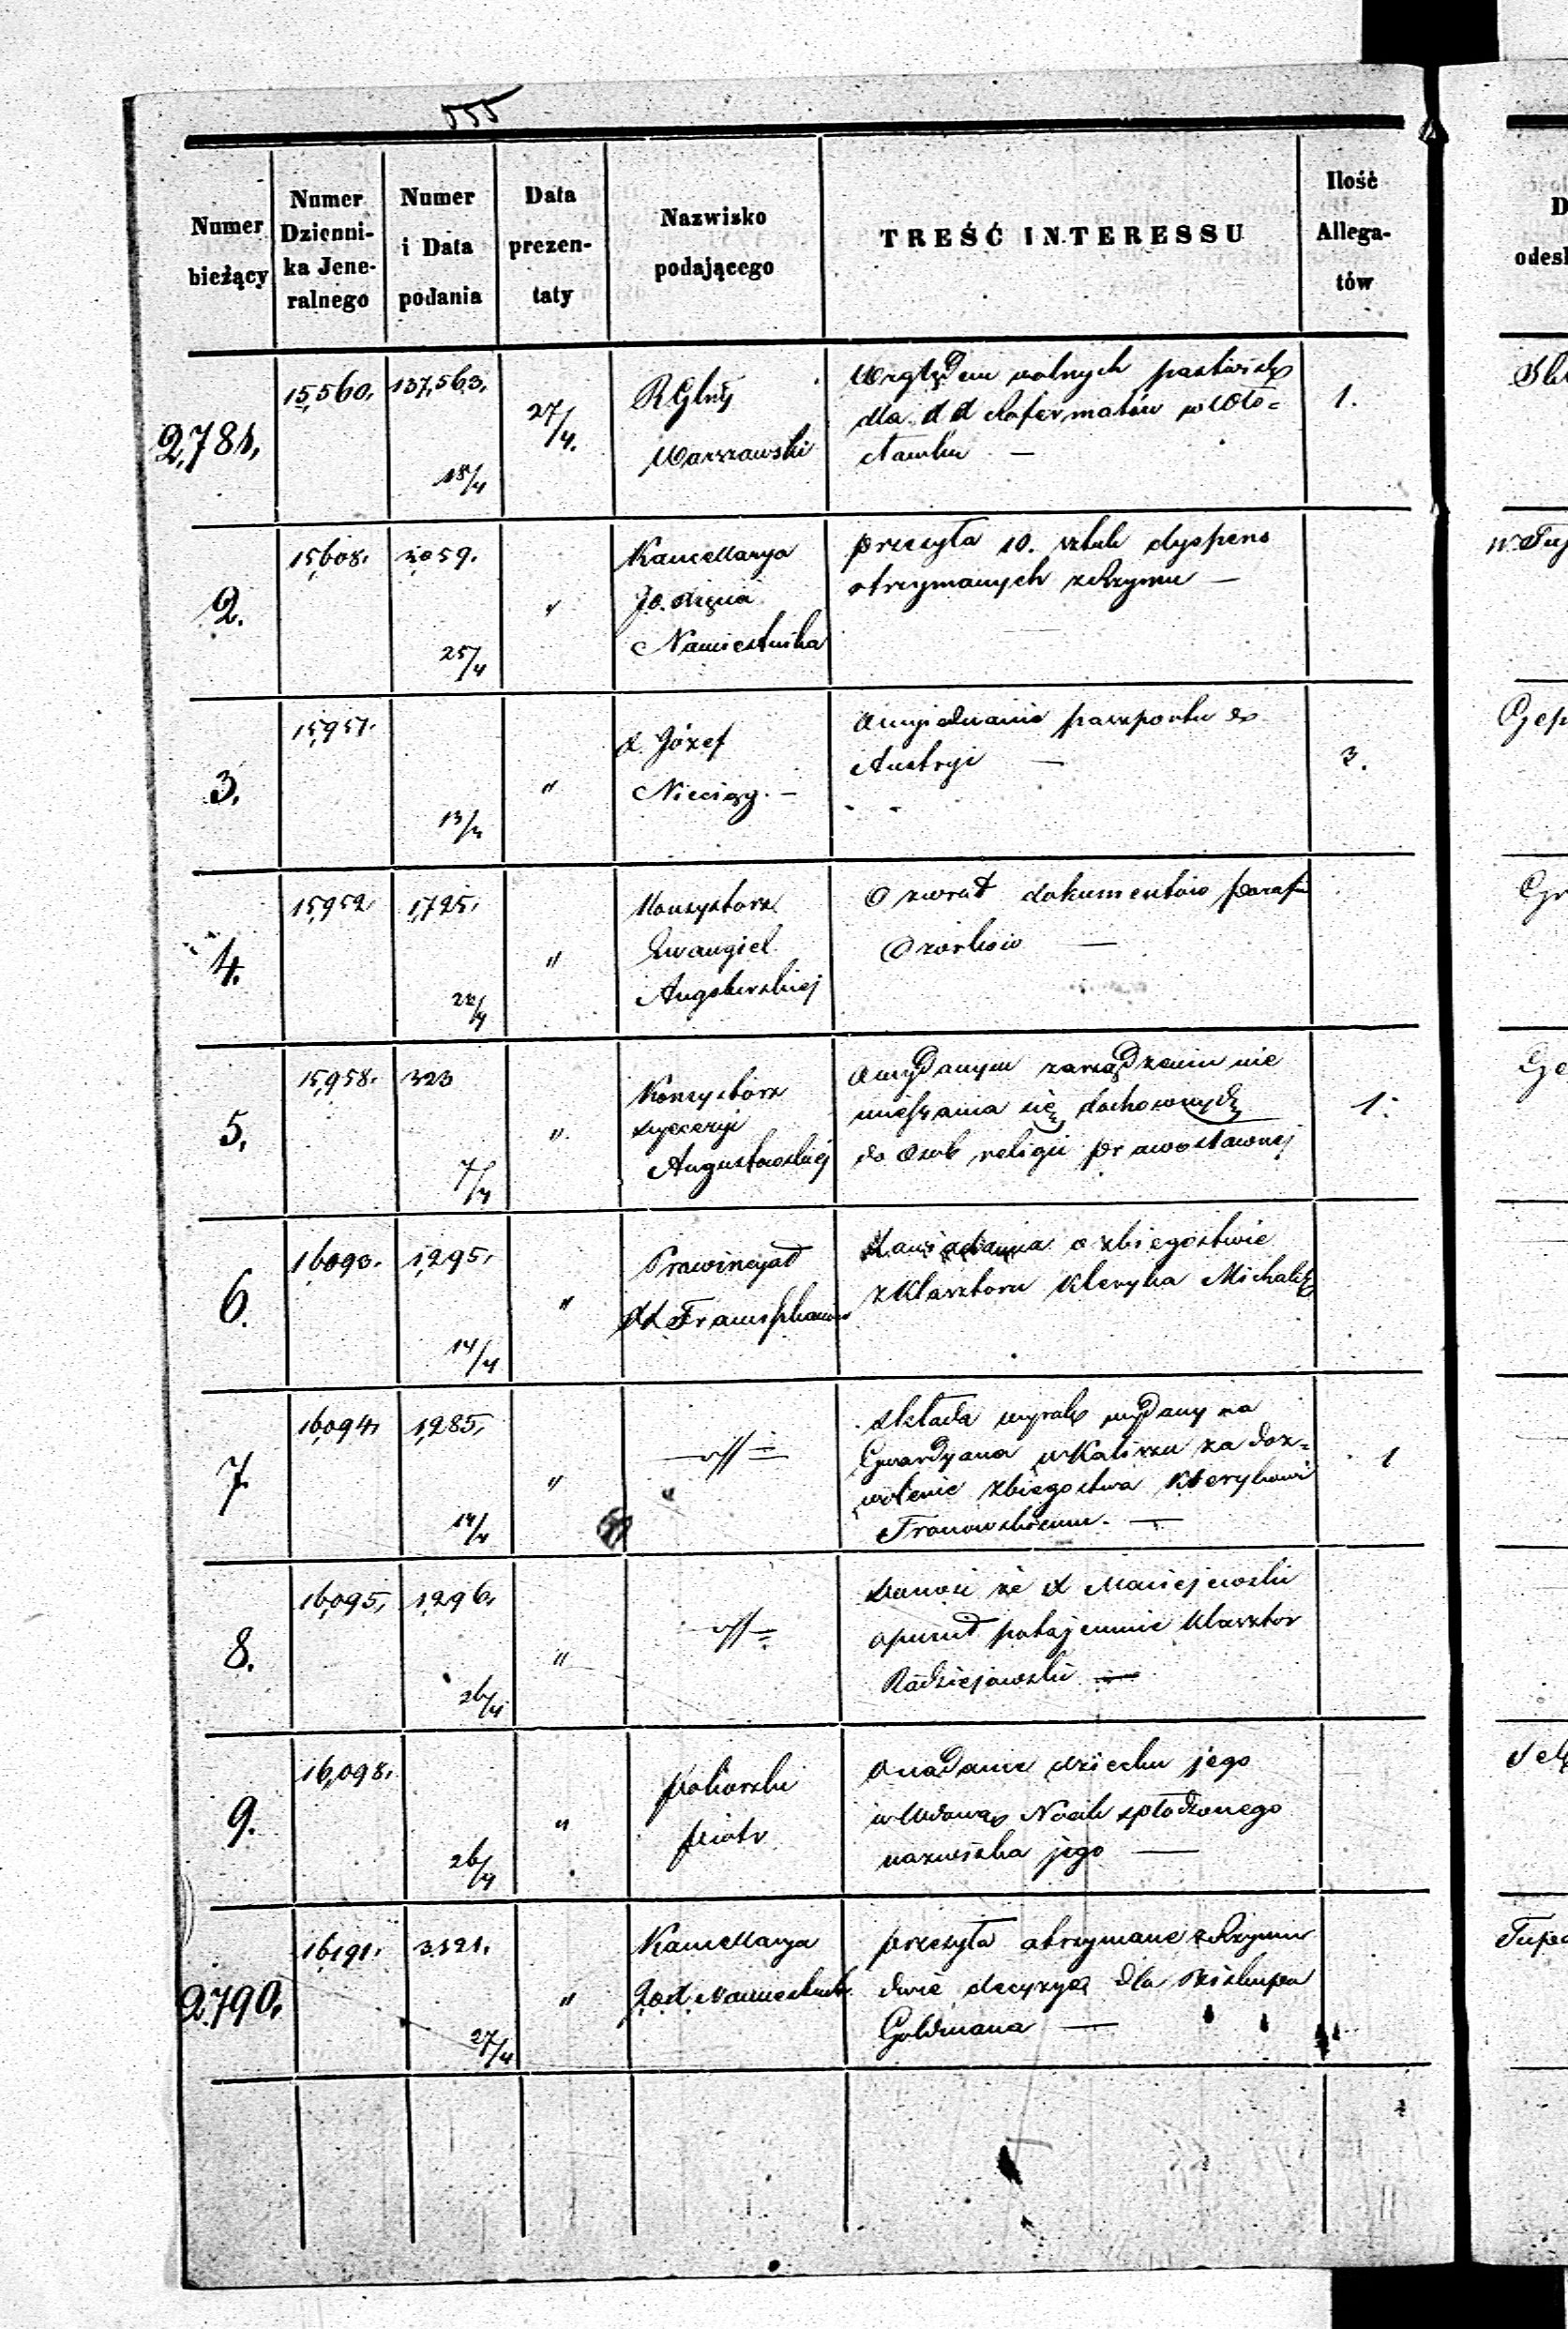 555
Numer bieżący
Numer Dzienni-ka Jene-ralnego
Numer i Data podania
Data prezen-taty
Nazwisko podającego
TREŚĆ INTERESSU
Ilość Allega-tów
2,781.
15,560.
137,563.
18/4
27/4.
RGlny
Warszawski
Względem wolnych pastwisk
dla XX Reformatów w Wło=
cławku —
1.
2.
15,608.
3059.
25/4
"
Kancellarya
JO. Xięcia
Namiestnika
przesyła 10. sztuk dyspens
otrzymanych z Rzymu —
3.
15,951.
13/4
"
X. Józef
Nieciąg. —
O wyiednanie paszportu do
Austryi —
3.
4.
15,952
1,725.
22/4
"
Konsystorz
Ewangiel
Augsburskiej
O zwrot dokumentów paraf
Ozorków —
5.
15,958.
323
7/4
"
Konsystorz
dyecezyi
Augustowskiej
O wydanym zarządzeniu nie
mieszania się duchownych
do osób religii prawosławnej
1.
6.
16,093.
1,295.
14/4
"
Prowincyał
XX Franciszkanów
Zawiadamia o zbiegostwie
z Klasztoru Kleryka Michalk
7.
16,094.
1,285.
14/4
"
Składa wyrok wydany na
Gwardyana w Kaliszu za doz=
wolenie zbiegostwa Klerykowi
1
8.
16,095.
1,296.
26/4
"
Donosi że X Maciejewski
opuścił potajemnie Klasztor
Radziejowski —
9.
16,098.
26/4
"
Piotr
O nadanie dziecku jego
z Wdową Noak spłodzonego
nazwiska jego —
2,790.
16,191.
3,321.
27/4
"
Kancellarya
JOX. Namiestnik.
przesyła otrzymane z Rzymu
dwie decyzye dla Biskupa
Goldmana —
D
odesł